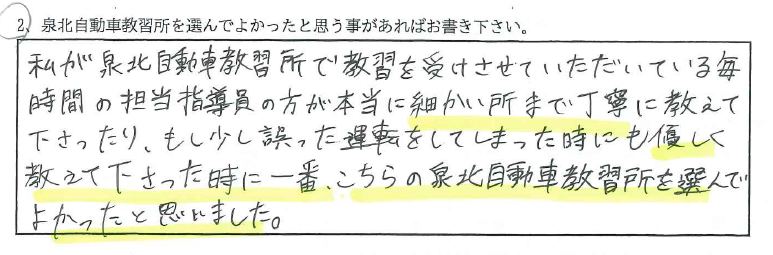 2、泉北自動車教習所を選んでよかったと思う事があればお書き下さい。
私が泉北自動車教習所で教習を受けさせていただいている毎
時間の担当指導員の方が本当に細かい所まで丁寧に教えて
下さったり、もし少し誤った運転をしてしまった時にも優しく
教えて下さった時に一番、こちらの泉北自動車教習所を選んで
よかったと思いました。